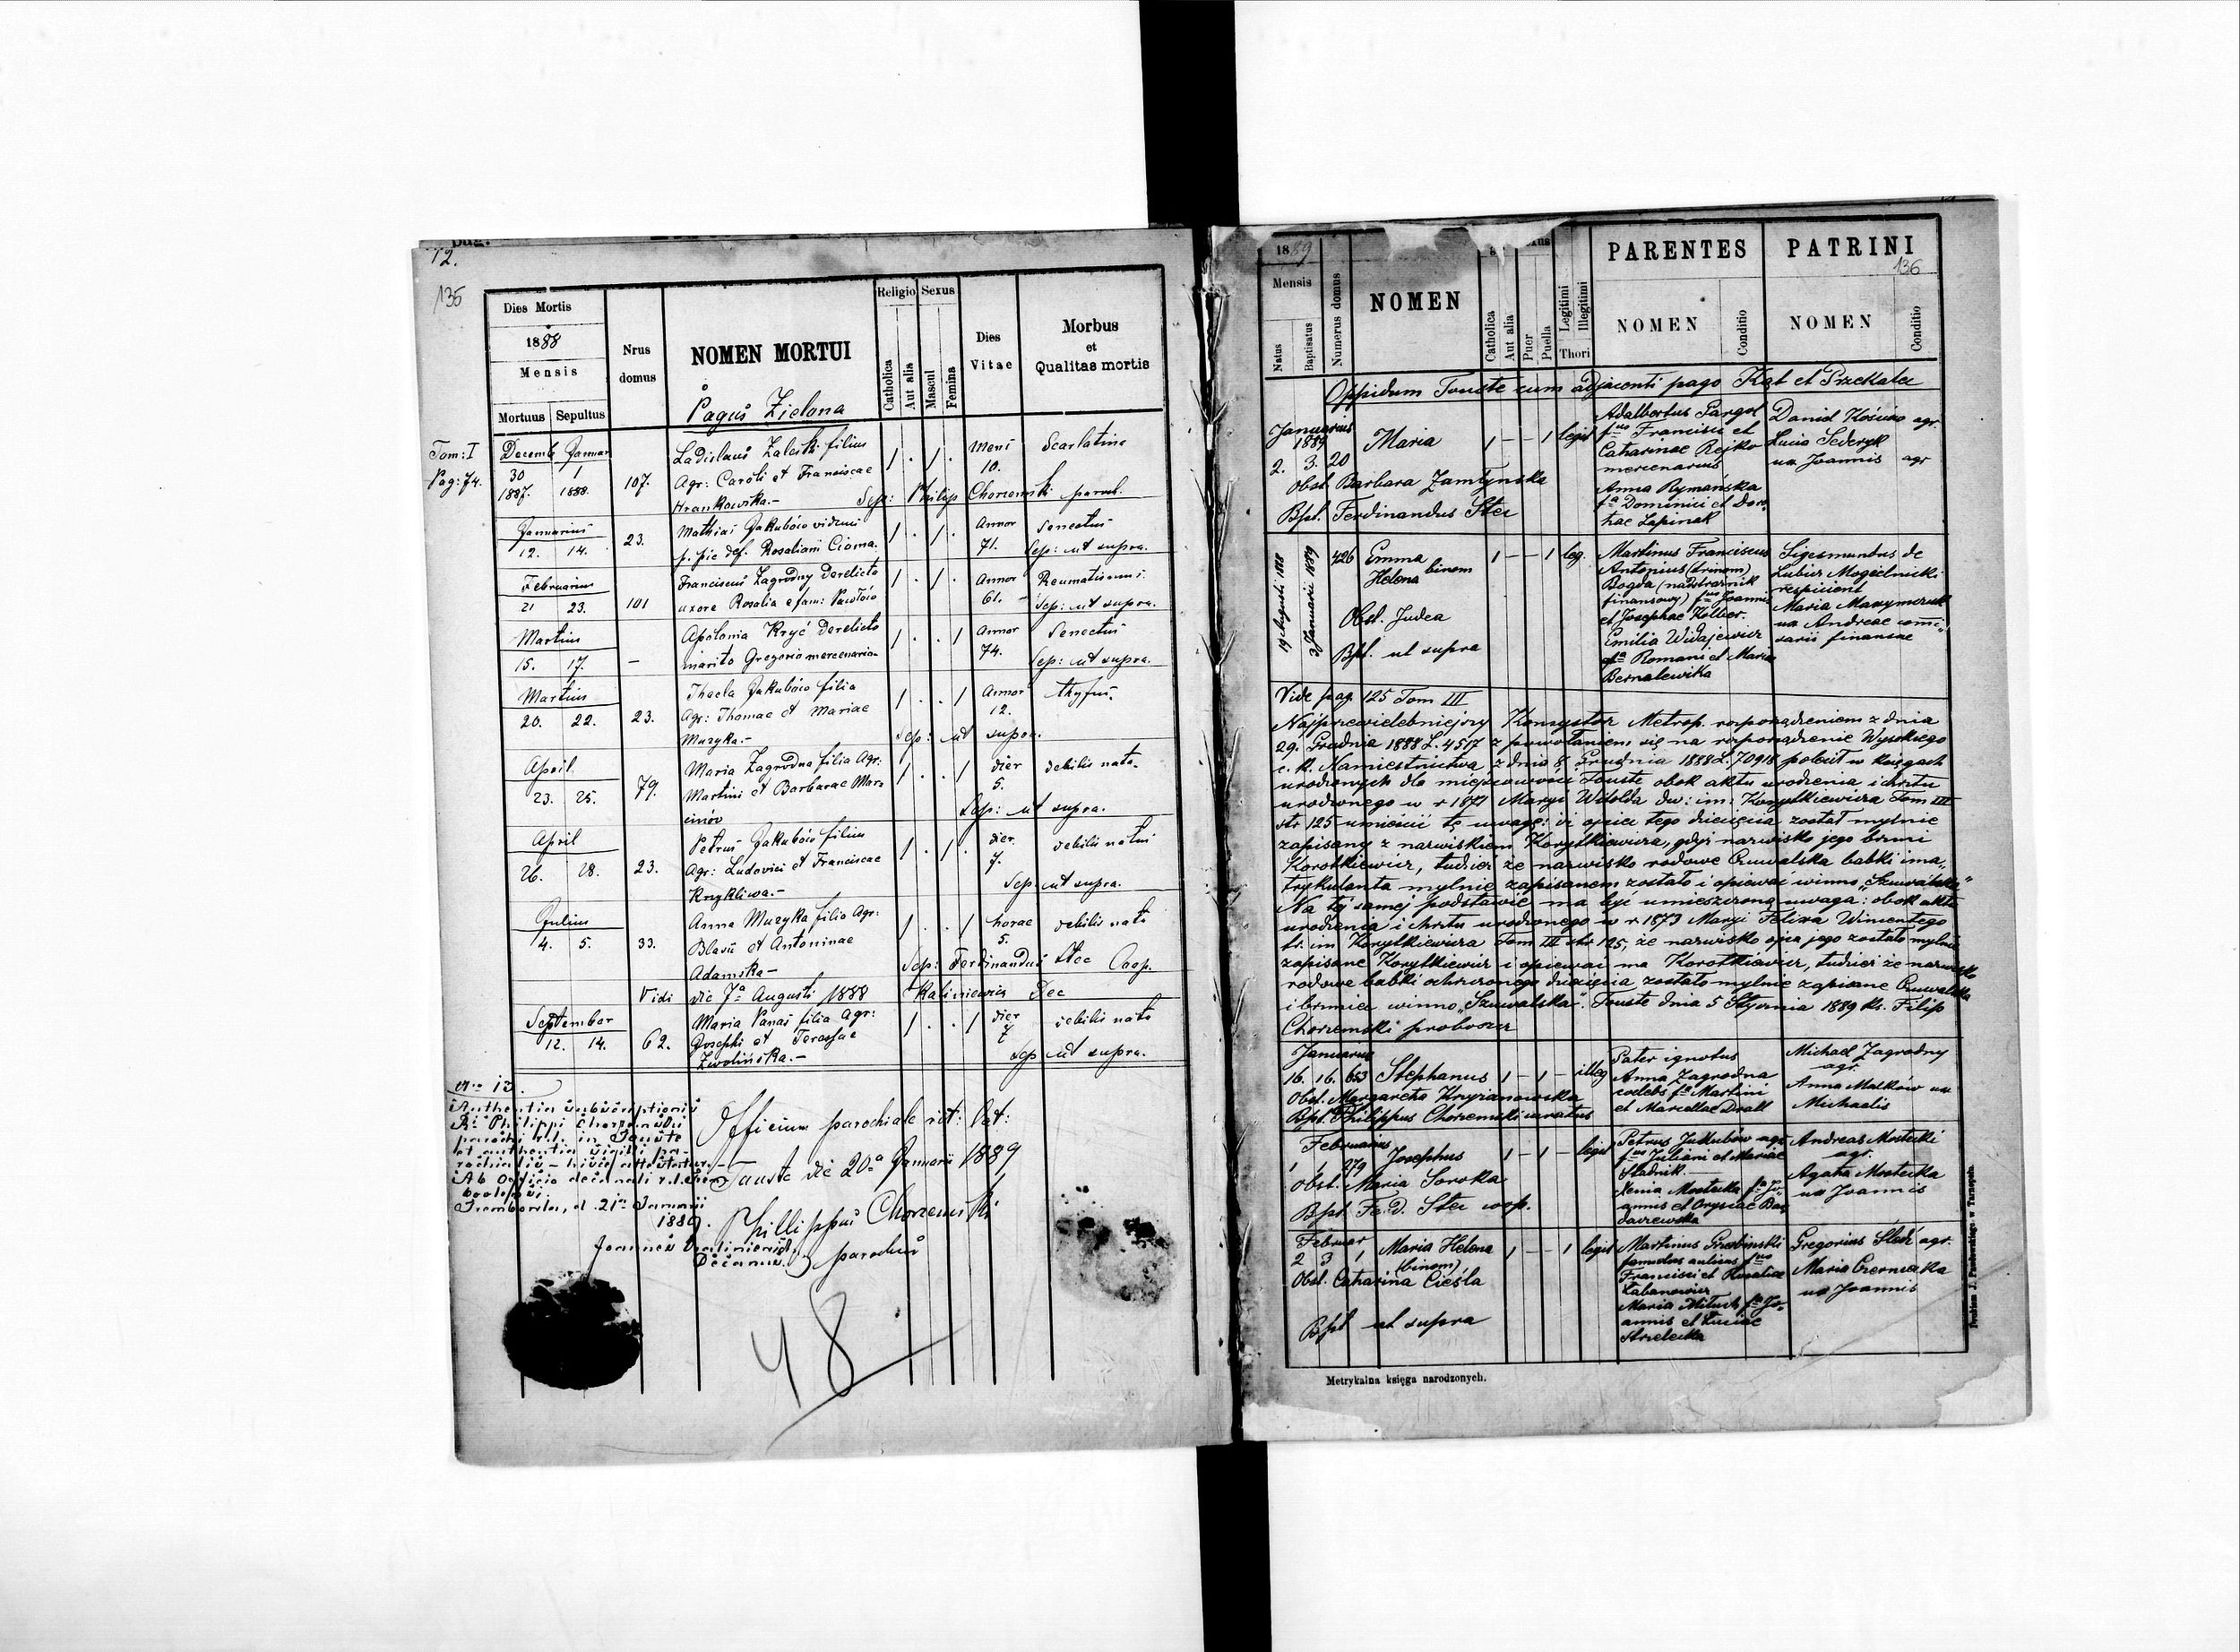 12.
135
Dies Mortis
1888
Mensis
Mortuus Sepultus
Nrus domus
NOMEN MORTUI
Pagus Zielona
Religio Sexus
Catholica
Aut alia
Mascul
Femina
Dies Vitae
Morbus
et
Qualitas mortis
Tom: I
Pag: 74.
Decemb Januar
30 1
1887. 1888.
107.
Ladislaus Zaleski filius
Agr: Caroli et Franciscae
Hrankowska.-
1 . 1 .
Mens 10.
Scarlatina
Sep: Philip Chorzemski paroch.
Januarius
12. 14.
23.
Mathias Jakubów viduus
p. pie def. Rosaliam Cioma.
1 . 1 .
Annor 71.
Senectus
Sep: ut supra.
Februarius
21 23.
101
Franciscus Zagrodny derelicta
uxore Rosalia e fam: Pawłów
1 . 1 .
Annor 61.
Reumatismus
Sep: ut supra.
Martius
15. 17.
-
Apolonia Kryć derelicto
marito Gregorio mercenario-
1 . . 1
Annor 74.
Senectus
Sep: ut supra.
Martius
20. 22.
23.
Thecla Jakubów filia
Agr: Thomae et Mariae
Muzyka.-
1 . . 1
Annor 12.
thyfus
Sep: ut supra.
April
23. 25.
79.
Maria Zagrodna filia Agr:
Martini et Barbarae Mar=
cinów
1 . . 1
dier 5.
debilis nata-
Sep: ut supra.
April
26. 28.
23.
Petrus Jakubów filius
Agr: Ludovici et Franciscae
Krykliwa.-
1 . 1 .
dier 7.
debilis natus
Sep: ut supra.
Julius
4. 5.
33.
Anna Muzyka filia Agr:
Blasii et Antoninae
Adamska-
1 . . 1
horae 5.
debilis nata
Sep: Ferdinandus Stec Coop.
Vidi die 7a Augusti 1888 Kaliniewicz Dec
September
12. 14.
62.
Maria Panas filia Agr:
Josephi et Teressae
Zwolińska.-
1 . . 1
dier 7
debilis nata
Sep ut supra.
Nro 13.
Authentia subscriptionis
Rdi Philippi Chorzemski
parochi r. l. in Touste
et authentia sigilli pa-
rochialis - hisce attestatur.-
Ab Officio decanali r. l.
Trembovla, d. 21a Januarii
1889.
Joannes Kaliniewicz
Decanus.
Officium parochiale rit: lat:
Touste die 20a Januarii 1889
Phillippus Chorzemski
parochus
48
1889
Mensis
Natus
Baptisatus
Numerus domus
NOMEN
Catholica
Aut alia
Puer
Puella
Legitimi
Illegitimi
Thori
PARENTES
NOMEN
Conditio
PATRINI
136
NOMEN
Conditio
Oppidum Touste cum adjacenti pago Kąt et Przekalec
Januarius
1889
2. 3. 20
Maria
1 - - 1 legit
Obst. Barbara Zamłyńska
Bpt. Ferdinandus Stec
Adalbertus Pargoł
fius Francisci et
Catharinae Rejko
mercenarius
Anna Rymańska
fa Dominici et Doro
theae Łapinak
Daniel Kościów agr.
Lucia Sederyk
ux Joannis agr
19 Augusti 1888
3 Januarii 1889
426
Emma
Helena binom
1 - - 1 leg.
Obst. Judea
Bpt. ut supra
Martinus Franciscus
Antonius (trinom)
Bogda (nadstrażnik
finansowy) fius Joannis
et Josephae Keller.
Emilia Widajewicz
fa Romani et Maria
Bernalewska
Sigismundus de
Lubicz Mogielnicki
respicient
Maria Maxymczuk
ux Andreae comi„
sarii finansae
Vide pag. 125 Tom III
Najprzewielebniejszy Konsystorz Metrop. rozporządzeniem z dnia
29. Grudnia 1888 L. 4517 z powołaniem się na rozporządzenie Wysokiego
c. k. Namiestnictwa z dnia 8 Grudnia 1888 L. 70918 polecił w księgach
urodzonych dla miejscowości Touste obok aktu urodzenia i chrztu
urodzonego w r 1871 Maryi Witolda dw: im: Korytkiewicza Tom III
str 125 umieścić tę uwagę: iż ojciec tego dziecięcia został mylnie
zapisany z nazwiskiem Korytkiewicza, gdyż nazwisko jego brzmi
Korotkiewicz, tudzież że nazwisko rodowe Czuwalska babki ima„
trykulanta mylnie zapisanem zostało i opiewać winno „Szuwalska”
Na tej samej podstawie ma być umieszczoną uwaga: obok aktu
urodzenia i chrztu urodzonego w r 1873 Maryi Felixa Wincentego
tr. im Korytkiewicza Tom III str 125, że nazwisko ojca jego zostało mylnie
zapisane Korytkiewicz i opiewać ma Korotkiewicz, tudzież że nazwisko
rodowe babki ochrzconego dziecięcia zostało mylnie zapisane Czuwalska
i brzmieć winno „Szuwalska”. Touste dnia 5 Stycznia 1889 Ks. Filip
Chorzemski proboszcz
Januarius
16. 16. 653
Stephanus
1 - 1 - illeg
Obst. Margaretha Kryżanowska
Bpt. Philippus Chorzemski curatus
Pater ignotus
Anna Zagrodna
coelebs fa Martini
et Marcellae Drall
Michael Zagrodny
agr.
Anna Malków ux
Michaelis
Februarius
1 1 279
Josephus
1 - 1 - legit
Obst. Maria Soroka
Bpt. Ferd. Stec coop.
Petrus Jakubów agr
fius Juliani et Mariae
Sładnik.
Xenia Mostecka fa Jo„
annis et Orysiae Baj
Andreas Mostecki
agr.
Agata Mostecka
ux Joannis
Februar
2 3 1
Maria Helena
(binom)
1 - - 1 legit
Obst. Catharina Cieśla
Bpt ut supra
Martinus Grabinski
famulus aulicus fius
Francisci et Rosaliae
Łabanowicz
Maria Mituch fa Jo„
annis et Luciae
Strzelecka
Gregorius Śledź agr.
Maria Czerniecka
ux Joannis
Metrykalna księga narodzonych.
Drukiem J. Pawłowskiego w Tarnopolu.